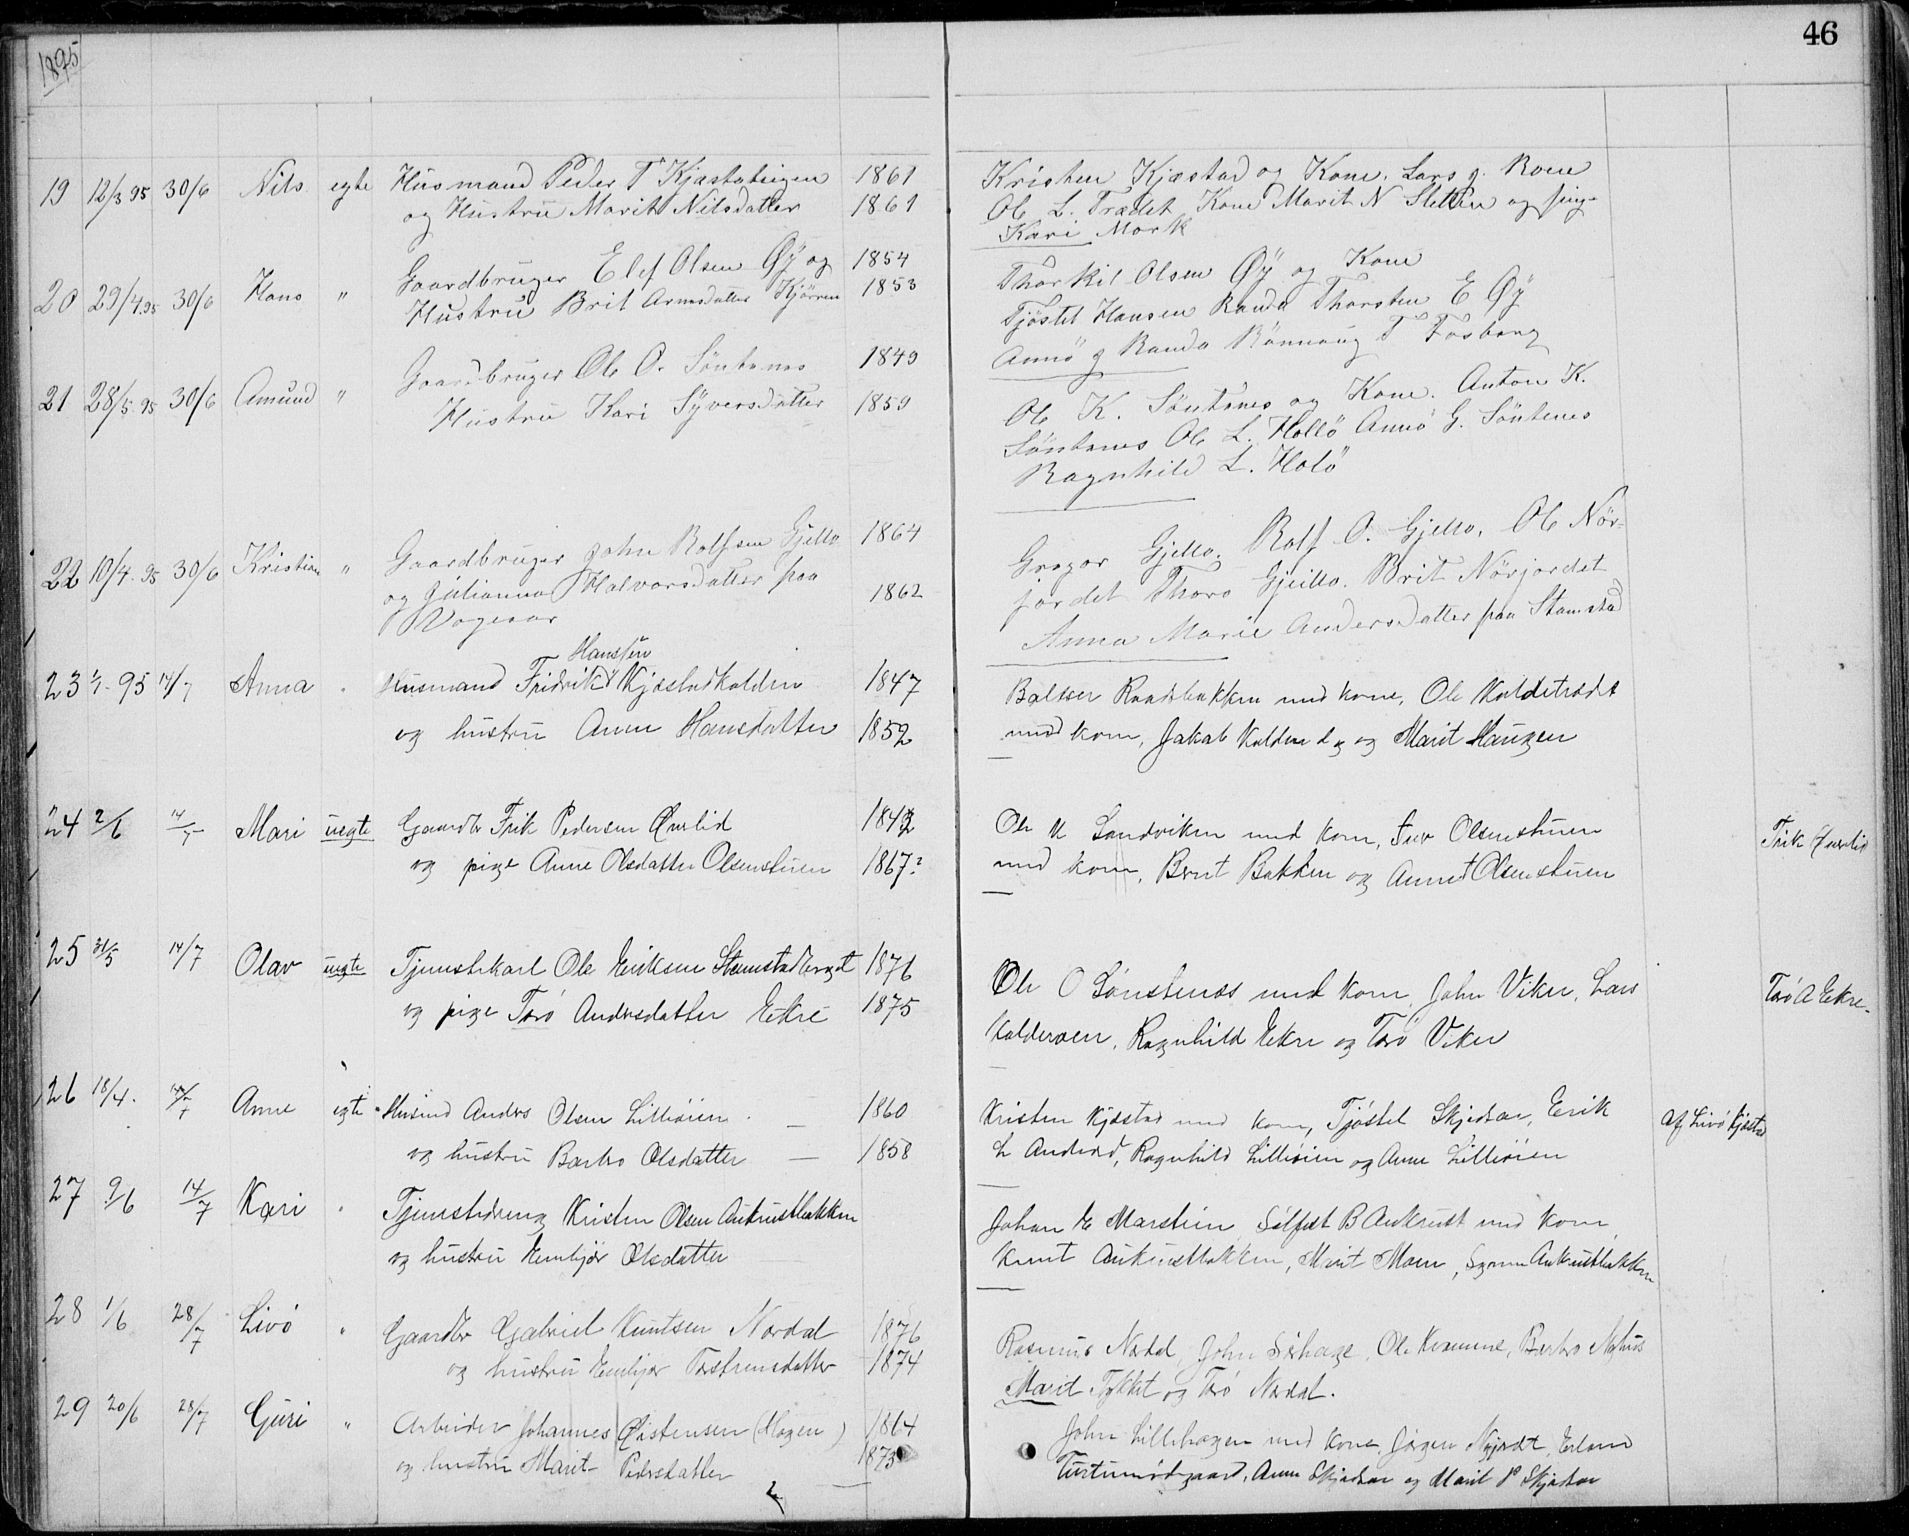 46
1895
19 12/3 95 30/6 Nils egte Husmand Peder T Kjæstateigen 1861
og Hustru Marit Nilsdatter 1861
Kristen Kjæstad og Kone. Lars g. Roen
Ole L. Trædet Kone Marit N Sletten og pige
Kari Mork
20 29/4.95 30/6 Hans " Gaardbruger Elef Olsen Øÿ og 1854
Hustru Brit Arnesdatter Kjörren 1853
Thorkil Olsen Øÿ og Kone
Tjöstel Hansen Randa Thorsten E Øÿ
Annö g Randa Rönnaug T Fosberg
21 28/5.95 30/6 Amund " Gaardbruger Ole O. Söntenes 1849
Hustru Kari Syversdatter 1859
Ole K. Söntenes og Kone. Anton K.
Söntenes Ole L. Hollö Annö G. Söntenes
Ragnhild L. Holö
22 10/4.95 30/6 Kristian " Gaardbruger John Rolfsen Gjello 1864
og Julianna Halvorsdatter paa 1862
Grogor Gjello. Rolf O. Gjello. Ole Nör-
jordet Thoro Gjeillo. Brit Nörjordet
Anna Marie Andersdatter paa Stamstad
23 95 14/7 Anna Husmand Fridrik Hanssen Kjæstadkolden 1847
og hustru Anne Hansdatter 1852
Baltser Raadsbakken med kone, Ole Koldetrædet
med kone, Jakob Kolden d.y. og Marit Haugen
24 2/6 14/7 Mari uegte Gaardbr Erik Pedersen Øverlid 1842
og pige Anne Olsdatter Olsenstuen 1867?
Ole K Sandviken med kone, Iver Olsenstuen
med kone, Berit Bakken og Anne T Olsenstuen
Erik Øverlid
25 31/5 14/7 Olav uegte Tjenestekarl Ole Eriksen Stamstadberget 1876
og pige Torö Andersdatter Ekre 1875
Ole O Sönstenes med kone, John Viker, Lars
Kolderoen, Ragnhild Ekre og Torö Viker
Torö A Ekre.
26 18/4. 14/7 Anne egte Husmd Anders Olsen Lilleöien 1860
og hustru Barbro Olsdatter 1858
Kristen Kjæstad med kone, Tjöstel Skjedsar, Erik
L Anderød, Ragnhild Lilleöien og Anne Lilleöien
af Livö Kjæstad
27 9/6 14/7 Kari Tjenestedreng Kristen Olsen Aukrustbakken
og hustru Embjör Olsdatter
Johan E Marstein, Sylfest B Aukrust med kone
Knut Aukrustbakken, Marit Moen, Synne Aukrustbakken
28 1/6 28/7 Livö " Gaardbr Gabriel Knutsen Nordal 1876
og hustru Embjør Torstensdatter 1874
Rasmus Nordal, John Sörhage, Ole Kvamme, Barbro Nyhus
Marit Fykket og Torö Nordal.
29 20/6 28/7 Guri " Arbeider Johannes Østensen (Hagen) 1864
og hustru Marit Pedersdatter 1873
John Lillehagen med kone, Jörgen Nyjordet, Erland
Turtumødegaard, Anne Skjedsar og Marit P Skjedsar